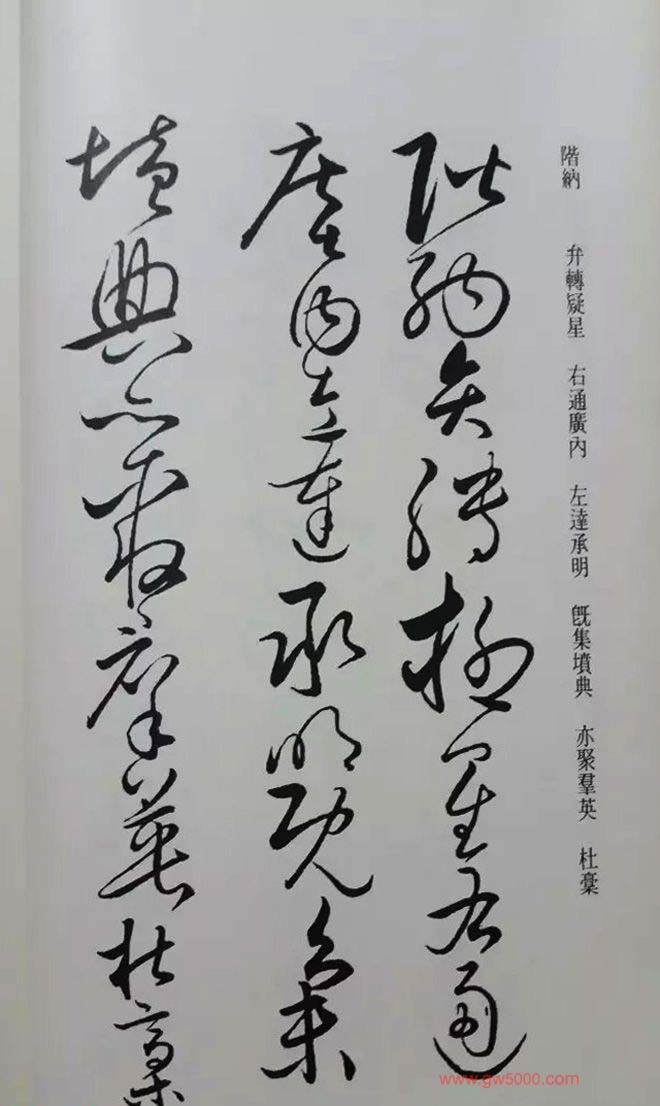 階納 弁轉疑星 右通廣內 左達承明 旣集墳典 亦聚羣英 杜稾
階納弁轉疑星右通
廣內左達承明旣集
墳典亦聚羣英杜稾
www.gw5000.com